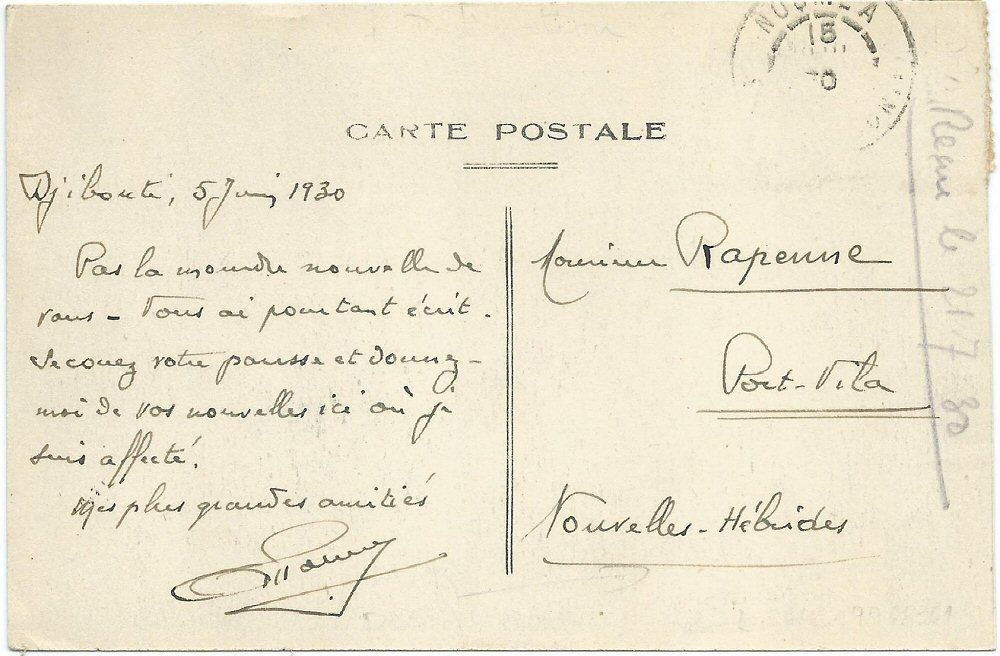 NOUMEA
15
CARTE POSTALE
Djibouti, 5 Juin 1930
Pas la moindre nouvelle de
vous – Vous ai pourtant écrit.
Secouez votre pousse et donnez-
moi de vos nouvelles ici où je
suis affecté.
Mes plus grandes amitiés
Monsieur Rapenne
Port-Vila
Nouvelles-Hébrides
Reçue le 21/7/30